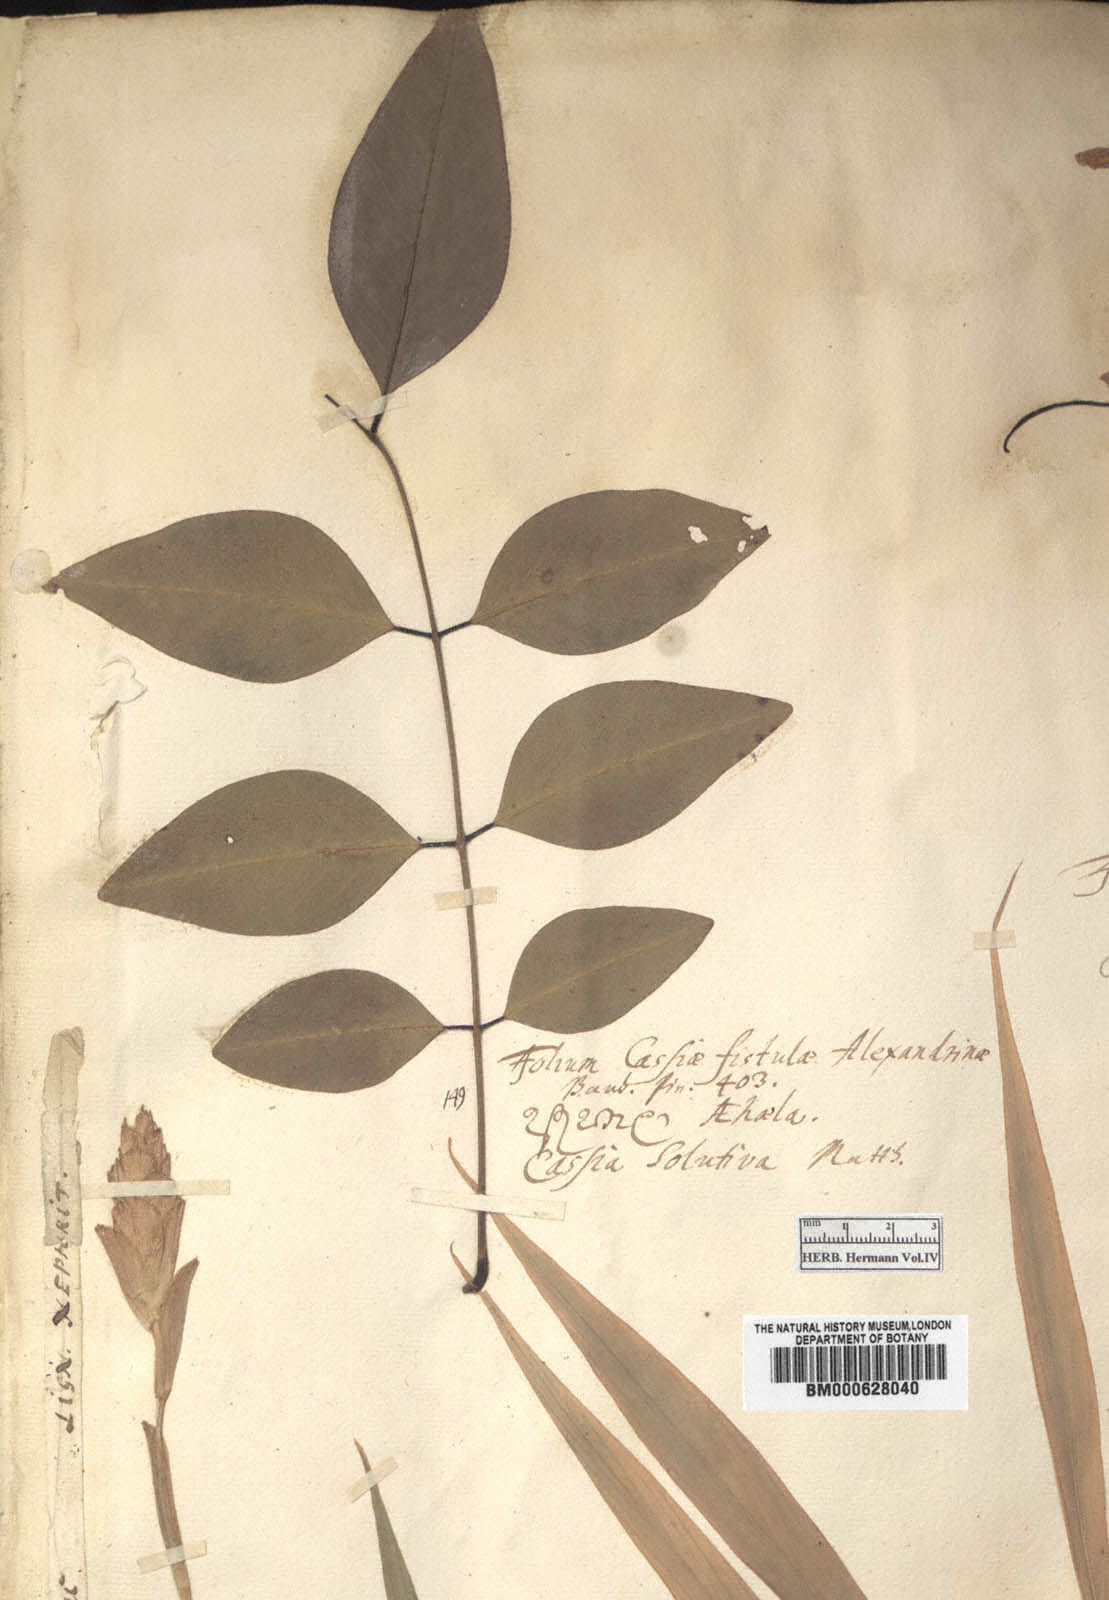 Folium Cassiæ fistulæ Alexandrinæ
Bauh. Pin: 403.
Æhæla.
Cassia Solutiva
149
LIGN. NEPHRIT.
mm 1 2 3
HERB. Hermann Vol.IV
THE NATURAL HISTORY MUSEUM,LONDON
DEPARTMENT OF BOTANY
BM000628040